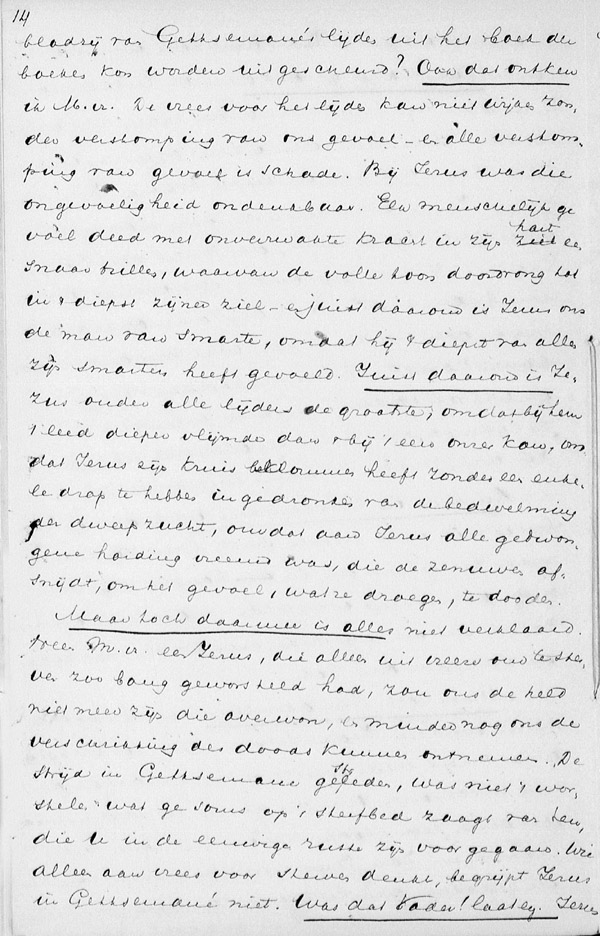 14
bladzij van Gethsemané's lijden uit het Boek der
boeken kon worden uitgescheurd? Ook dat ontken
ik M.v. De vrees voor het lijden kan niet wijken zon-
der verstomping van ons gevoel - en alle verstom-
ping van gevoel is schade. Bij Jezus was die
ongevoeligheid ondenkbaar. Elk menschelijk ge
voel deed met onverzwakte kracht in zijn hart een
snaar trillen, waarvan de volle toon doordrong tot
in 't diepst zijner ziel - en juist daarom is Jezus ons
de man van smarte, omdat hij 't diepst van allen
zijn smarten heeft gevoeld. Juist daarom is Je-
zus onder alle lijders de grootste, omdat bij hem
't leed dieper vlijmde dan 't bij één onzer kan, om
dat Jezus zijn kruis beklommen heeft zonder een enke-
le drop te hebben ingedronken van de bedwelming
der dweepzucht, omdat aan Jezus alle gedwon-
gene houding vreemd was, die de zenuwen af-
snijdt, om het gevoel, wat ze droegen, te dooden.
Maar toch daarmee is alles niet verklaard.
Neen M.v. een Jezus, die alleen uit vrees om te ster-
ven zoo bang geworsteld had, zou ons de held
niet meer zijn die overwon, en minder nog ons de
verschrikking des doods kunnen ontnemen. De
strijd in Gethsemané gestreden, was niet 't wor-
stelen wat ge soms op 't sterfbed zaagt van hen,
die U in de eeuwige ruste zijn voorgegaan. Wie
alleen aan vrees voor sterven denkt, begrijpt Jezus
in Gethsemané niet. Was dat Vader! laat Jezus